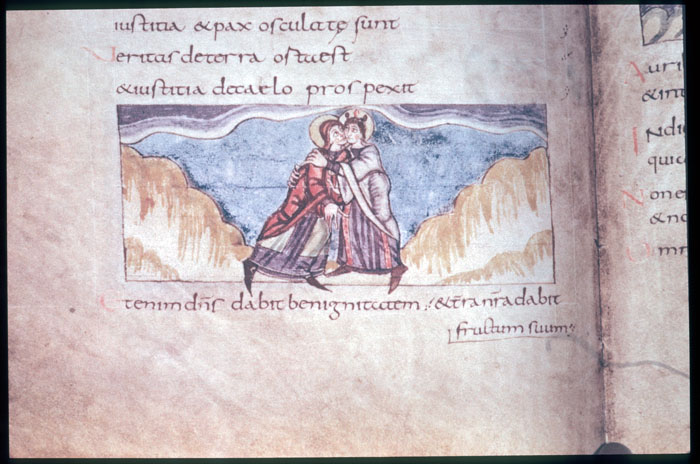 iustitia & pax osculatę sunt
Veritas de terra orta est
& iustitia de caelo prospexit
Etenim dñs dabit benignitatem, & terra nr̃a dabit
fructum suum
Auri
& in
Indi
quic
None
& no